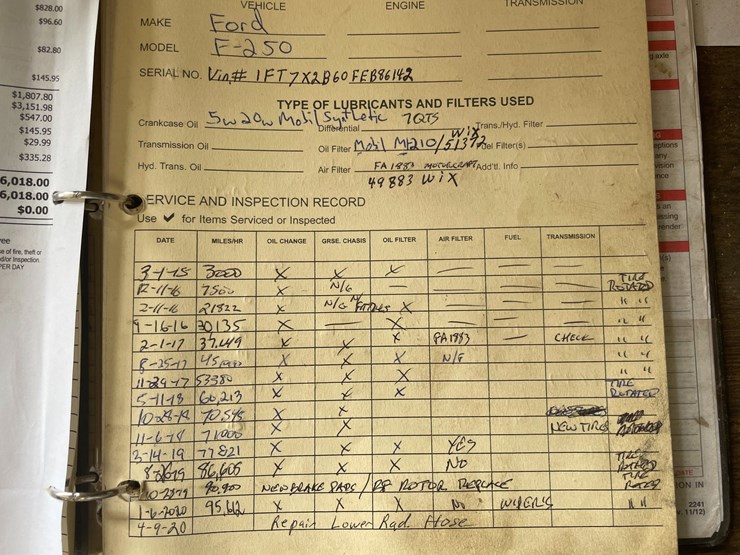 $828.00
$96.60
$82.80
$145.95
$1,807.80
$3,151.98
$547.00
$145.95
$29.99
$335.28
6,018.00
6,018.00
$0.00
of fire, theft or
d/or Inspection.
PER DAY
VEHICLE ENGINE TRANSMISSION
MAKE Ford
MODEL F-250
SERIAL NO. Vin# 1FT7X2B60FEB86142
TYPE OF LUBRICANTS AND FILTERS USED
Crankcase Oil 5w20w Mobil Synthetic 7QTS
Differential Trans./Hyd. Filter
Transmission Oil Oil Filter Mobil M1210/51372 Wix Fuel Filter(s)
Hyd. Trans. Oil Air Filter FA1883 MOTORCRAFT Add'tl. Info
49883 Wix
SERVICE AND INSPECTION RECORD
Use ✔ for Items Serviced or Inspected
DATE MILES/HR OIL CHANGE GRSE. CHASIS OIL FILTER AIR FILTER FUEL TRANSMISSION
3-1-15 3000 X X X — — — TIRE
7500 X N/G — — — — ROTATED
2-11-16 21822 X N/G NO FITTINGS X — — — " "
9-16-16 30,135 X — X — — — " "
2-1-17 37,449 X X X FA1883 — CHECK " "
8-25-17 45,000 X X X N/G " "
11-29-17 53380 X X X TIRE
5-11-18 60,213 X X X ROTATED
10-28-18 70,595 X X
11-6-18 71000 X NEW TIRES
3-14-19 77821 X X X YES TIRE
86,605 X X X NO ROTATED
90,900 NEW BRAKE PADS / ROTOR REPLACE TIRE
1-6-2020 95,612 X X X NO WIPERS " "
4-9-20 Repair Lower Rad. Hose
2241
11/12)